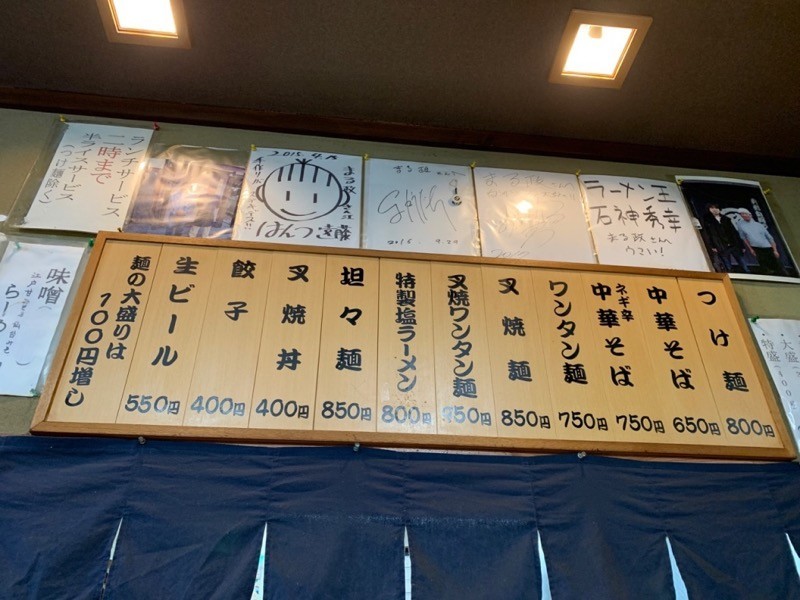 ランチサービス
二時まで
半ライスサービス
(つけ麺除く)
2015.9.15
ラーメン王
石神秀幸
まる政さん江
うまい!
味噌
つけ麺
800円
中華そば
650円
ネギ辛
中華そば
750円
ワンタン麺
750円
叉焼麺
850円
叉焼ワンタン麺
特製塩ラーメン
800円
坦々麺
850円
叉焼丼
400円
餃子
400円
生ビール
550円
麺の大盛りは
100円増し